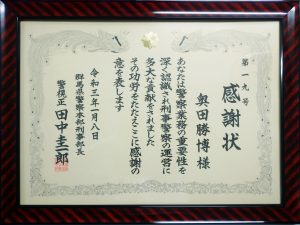 第一九号
感謝状
奥田勝博様
あなたは警察業務の重要性を
深く認識され刑事警察の運営に
多大な貢献をされました
その功労をたたえここに感謝の
意を表します
令和三年一月八日
群馬県警察本部刑事部長
警視正 田中圭一郎